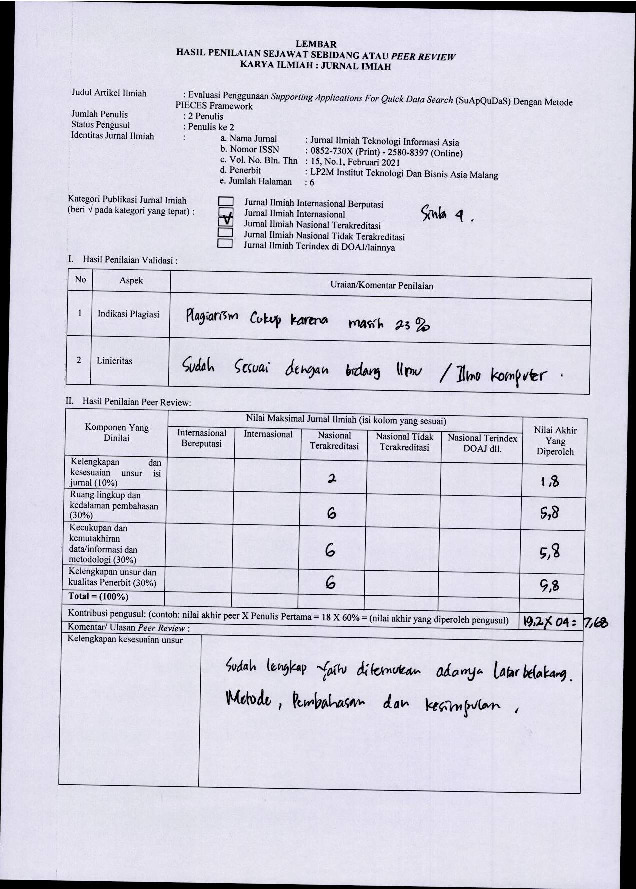 LEMBAR
HASIL PENILAIAN SEJAWAT SEBIDANG ATAU PEER REVIEW
KARYA ILMIAH : JURNAL IMIAH
Judul Artikel Ilmiah : Evaluasi Penggunaan Supporting Applications For Quick Data Search (SuApQuDaS) Dengan Metode
PIECES Framework
Jumlah Penulis : 2 Penulis
Status Pengusul : Penulis ke 2
Identitas Jurnal Ilmiah : a. Nama Jurnal : Jurnal Ilmiah Teknologi Informasi Asia
b. Nomor ISSN : 0852-730X (Print) - 2580-8397 (Online)
c. Vol. No. Bln. Thn : 15, No.1, Februari 2021
d. Penerbit : LP2M Institut Teknologi Dan Bisnis Asia Malang
e. Jumlah Halaman : 6
Kategori Publikasi Jurnal Imiah Jurnal Ilmiah Internasional Berputasi
(beri √ pada kategori yang tepat) : Jurnal Ilmiah Internasional
√ Jurnal Ilmiah Nasional Terakreditasi
Sinta 4.
Jurnal Ilmiah Nasional Tidak Terakreditasi
Jurnal Ilmiah Terindex di DOAJ/lainnya
I. Hasil Penilaian Validasi :
No Aspek Uraian/Komentar Penilaian
1 Indikasi Plagiasi Plagiarism Cukup karena masih 23 %
2 Linieritas Sudah Sesuai dengan bidang Ilmu / Ilmu komputer .
II. Hasil Penilaian Peer Review:
Komponen Yang Dinilai
Nilai Maksimal Jurnal Ilmiah (isi kolom yang sesuai)
Nilai Akhir Yang Diperoleh
Internasional Bereputasi
Internasional
Nasional Terakreditasi
Nasional Tidak Terakreditasi
Nasional Terindex DOAJ dll.
Kelengkapan dan
kesesuaian unsur isi
jurnal (10%) 2 1,8
Ruang lingkup dan
kedalaman pembahasan
(30%) 6 5,8
Kecukupan dan
kemutakhiran
data/informasi dan
metodologi (30%) 6 5,8
Kelengkapan unsur dan
kualitas Penerbit (30%) 6 5,8
Total = (100%)
Kontribusi pengusul: (contoh: nilai akhir peer X Penulis Pertama = 18 X 60% = (nilai akhir yang diperoleh pengusul) 19,2 X 04 = 7,68
Komentar/ Ulasan Peer Review :
Kelengkapan kesesuaian unsur
Sudah lengkap yaitu ditemukan adanya latar belakang.
Metode, Pembahasan dan kesimpulan,